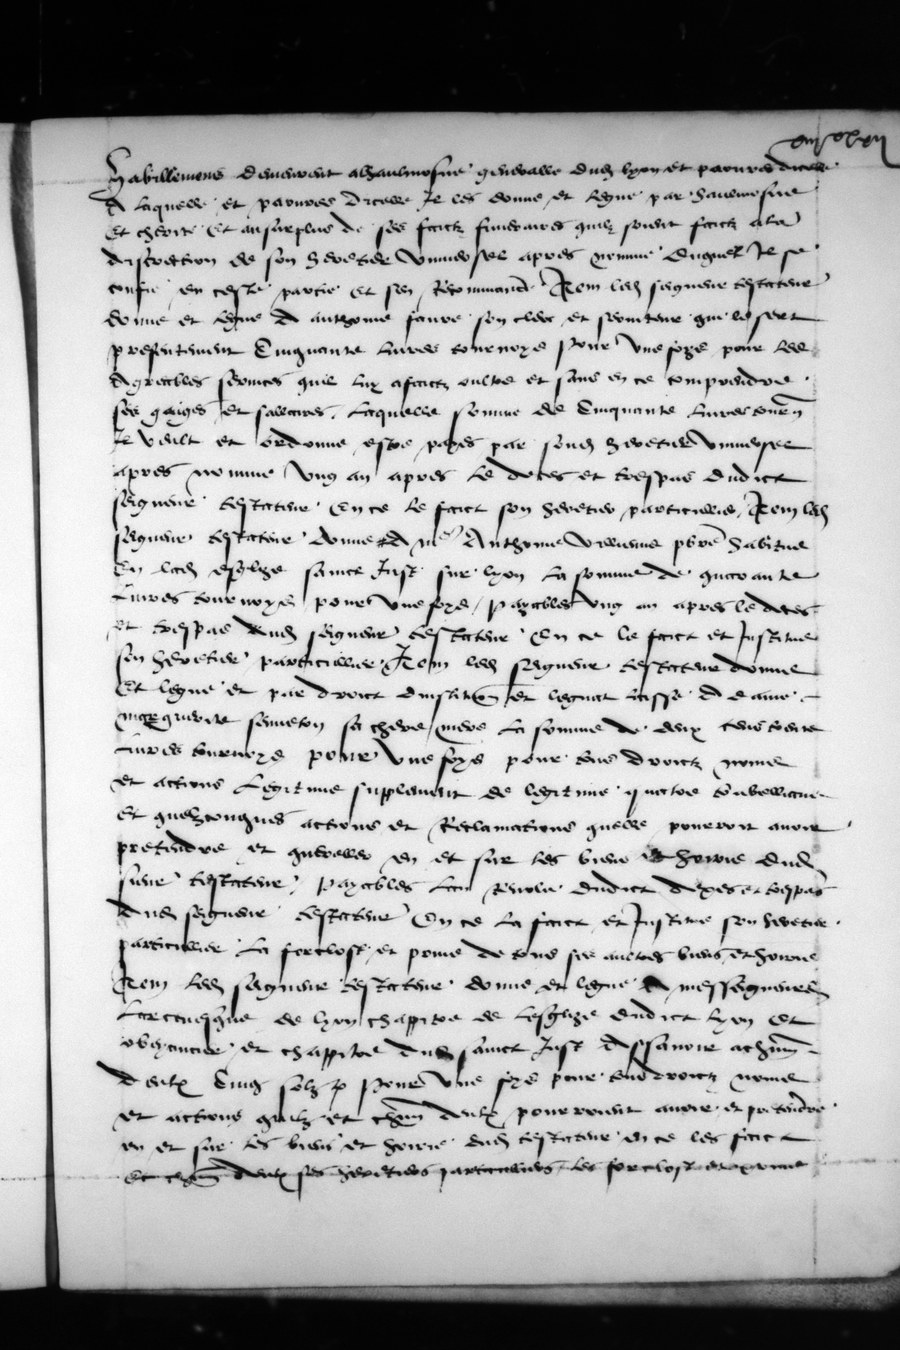 habillemens demeurent a lhaulmosne generalle dud lyon et pauvres dicelle
A laquelle et pauvres dicelle Je les donne et legue par haulmosne
Et cherite Et au surplus de ses faictz funeraires quilz soient faictz a la
discretion de son heretier universel apres nomme duquel Il se
confie en ceste partie Et sen Recommande Item led seigneur testateur
donne et legue A anthoine faure son clerc et serviteur qui le sert
presentement Cinquante livres tournoys pour une foys pour les
Agreables services quil luy a faictz oultre et sans en ce comprendre
ses gaiges et sallaires Laquelle somme de Cinquante livres tourn
Il veult et ordonne estre payes par sond heretier universel
apres nomme Ung an apres le deces et trespas dudict
seigneur testateur En ce le faict son heretier particulier Item led
seigneur testateur donne A me Anthoine pbre habitue
En lad esglize sainct Just sur lyon La somme de quarante
Livres tournoys pour une foys payables ung an apres le deces
et trespas dud seigneur testateur En ce le faict et Institue
son heretier particulier Item led seigneur testateur donne
Et legue et par droict dinstitution et legat laisse A dame
marguerite sa chere mere La somme de deux cens trente
Livres tournoys pour une foys pour tous droictz noms
et actions Legitime supplement de legitime quarte trebellianne
Et quelzconques actions et Reclamations quelle pourroit avoir
pretendre et quereller en et sur les biens et hoirie dud
sieur testateur payables Lan Revolu dudict deces et trespas
dud seigneur testateur En ce La faict et Institue son heretier
particulier La forclost et prive de tous ses aultres biens et hoirie
Item led seigneur testateur donne et legue A messeigneurs
Larcevesque de lyon chappitre de lesglize dudict lyon Et
obeancier et chappitre dud sainct Just Assavoir a chun
deulx Cinq solz pour une foys pour tous droictz noms
et actions quilz et chun deulx pourroient avoir et pretendre
en et sur les biens et hoirie dud testateur en ce les faict
Et chun deulx ses heretiers particuliers les forclost et prive